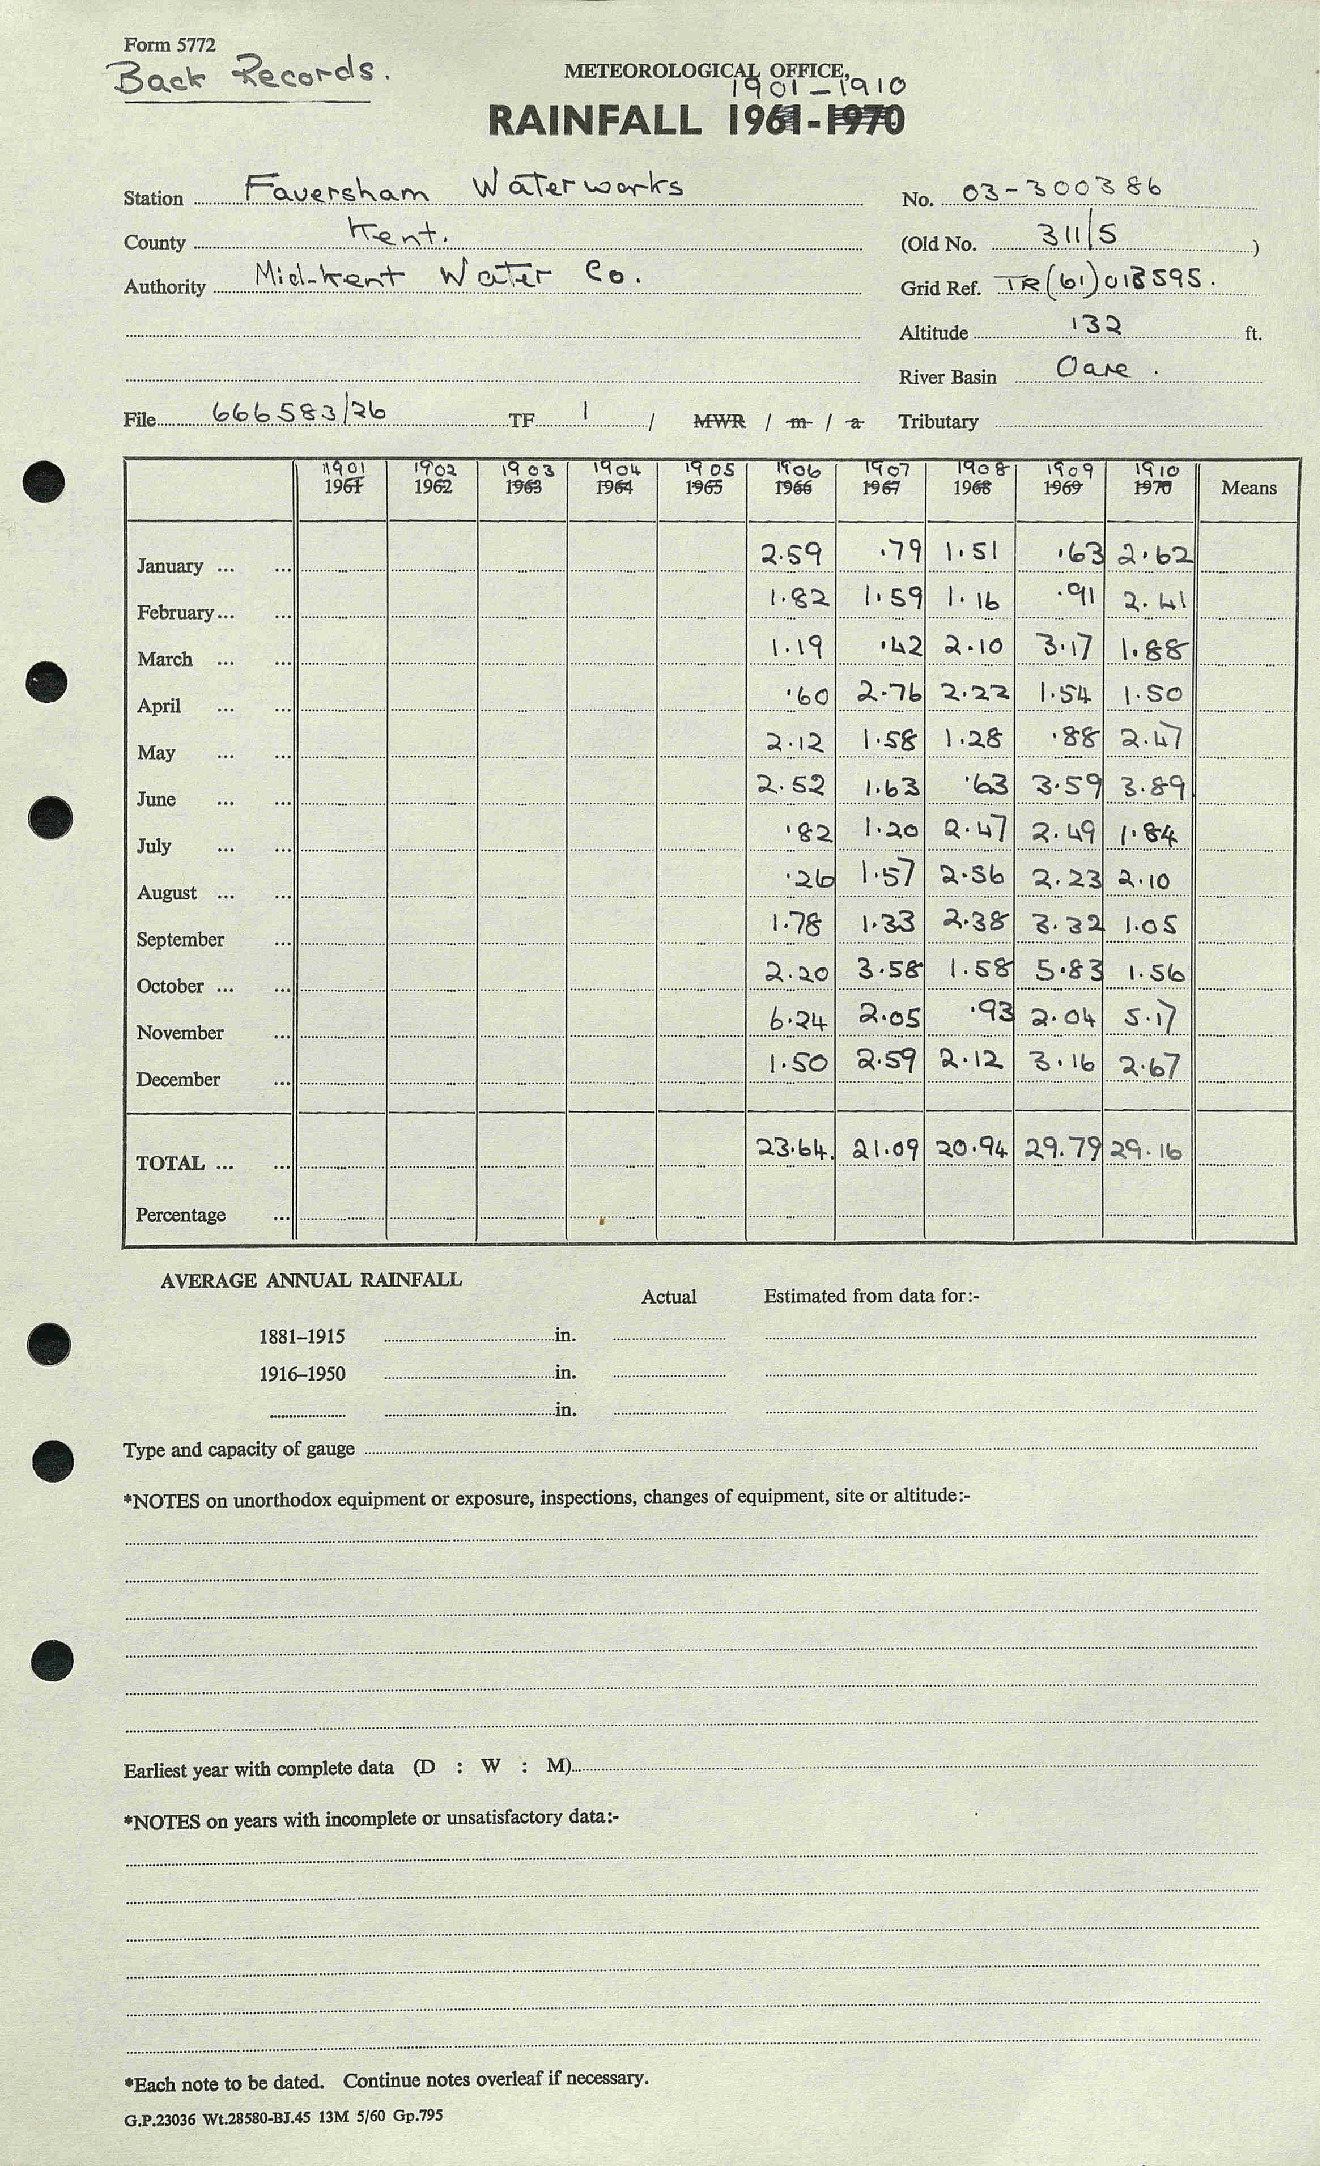 Form 5772
Back Records.
METEOROLOGICAL OFFICE,
1901-1910
RAINFALL 1961-1970
Station Faversham Waterworks No. 03-300386
County Kent. (Old No. 311/5 )
Authority Mid-Kent Water Co. Grid Ref. TR(61)013595.
Altitude 132 ft.
River Basin Oare.
File 666583/26 TF 1 / MWR / m / a Tributary
1901 1902 1903 1904 1905 1906 1907 1908 1909 1910
1961 1962 1963 1964 1965 1966 1967 1968 1969 1970 Means
January ... ... 2.59 .79 1.51 .63 2.62
February... ... 1.82 1.59 1.16 .91 2.41
March ... ... 1.19 .42 2.10 3.17 1.88
April ... ... .60 2.76 2.22 1.54 1.50
May ... ... 2.12 1.58 1.28 .88 2.47
June ... ... 2.52 1.63 .63 3.59 3.89
July ... ... .82 1.20 2.47 2.49 1.84
August ... ... .26 1.57 2.56 2.23 2.10
September ... 1.78 1.33 2.38 3.32 1.05
October ... ... 2.20 3.58 1.58 5.83 1.56
November ... 6.24 2.05 .93 2.04 5.17
December ... 1.50 2.59 2.12 3.16 2.67
TOTAL ... ... 23.64. 21.09 20.94 29.79 29.16
Percentage ...
AVERAGE ANNUAL RAINFALL
Actual Estimated from data for:-
1881–1915 in.
1916–1950 in.
in.
Type and capacity of gauge
*NOTES on unorthodox equipment or exposure, inspections, changes of equipment, site or altitude:-
Earliest year with complete data (D : W : M)
*NOTES on years with incomplete or unsatisfactory data:-
*Each note to be dated. Continue notes overleaf if necessary.
G.P.23036 Wt.28580-BJ.45 13M 5/60 Gp.795